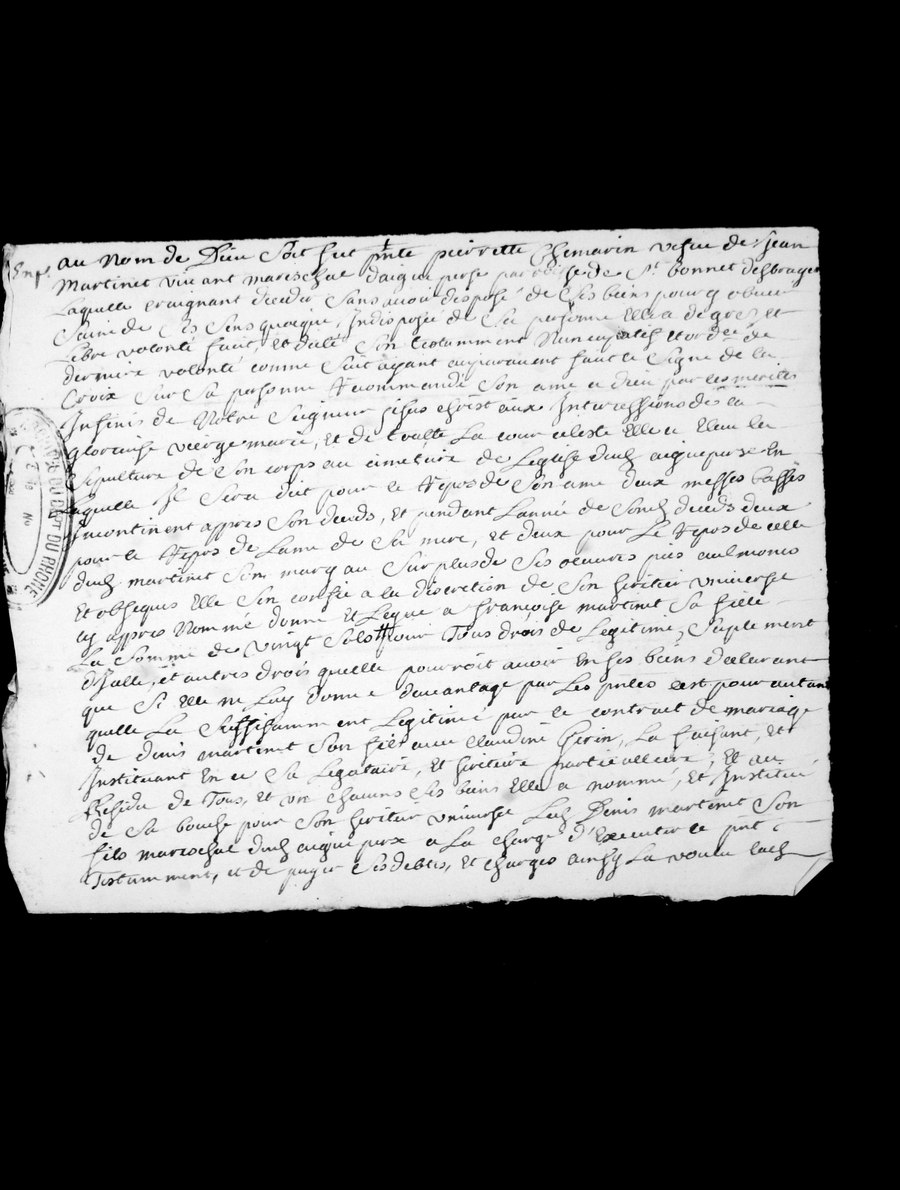 Exp.
au Nom de Dieu Soit fut pnte pierrette Chemarin vefve de Jean
Martinet vivant mareschal daigueperse parroisse de St bonnet desbruyer
Laquelle craignant deceder Sans avoir disposé de Ses biens pour y obvier
Saine de Ses Sens quoique Indisposée de Sa personne Elle a de gres, et
Libre volonté fait, et dicté Son testament Nuncupatif et ordce de
derniere volonté comme Suit ayant auparavant fait le Signe de la
Croix Sur Sa personne recommandé Son ame a dieu par les merites
Infinis de Notre Seigneur jesus christ aux Intercessions de la
glorieuse vierge marie, et de toutte La cour celeste Elle a Eleu la
Sepulture de Son corps au cimetiere de Leglise dud aigueperse En
Laquelle Il Sera dit pour le repos de Son ame deux messes basses
Incontinent appres Son deceds, et pendant Lannée de Sond deceds deux
pour le repos de Lame de Sa mere, et deux pour Le repos de celle
dud martinet Son mary au Surplus de Ses oeuvres pies aulmones
Et obseques Elle Sen confie a la discretion de Son heritier universel
cy appres Nommé donne et Legue a françoise martinet Sa fille
La Somme de vingt Sols pour Tous drois de Legitime, Suplement
dicelle, et autres drois quelle pourroit avoir En Ses biens declarant
que Si Elle ne Luy donne davantage par Les pntes cest pour autant
quelle La Suffisamment Legitimée par le contrat de mariage
de denis martinet Son fils avec claudine Cherin, La faisant, et
Instituant En ce Sa Legataire, et heritiere particulliere, Et au
Residu de Tous, et un chacuns Ses biens Elle a nommé, et Institué
de Sa bouche pour Son heritier universel Led Denis martinet Son
fils mareschal dud aigueperse a La charge d'Executer le pnt
Testamment, et de payer Ses debtes, et charges ainsy La voulu lad